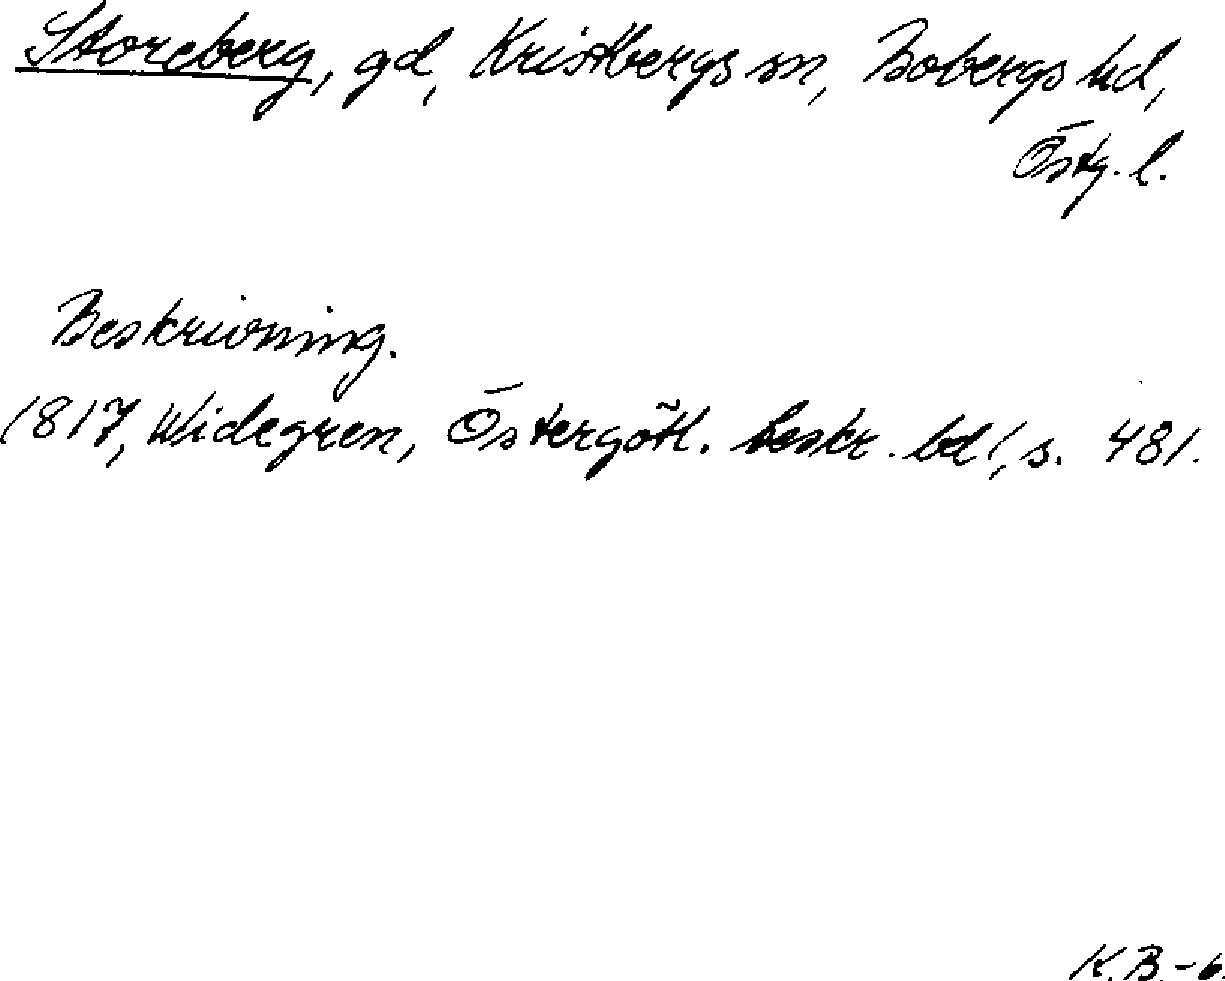 Storeberg, gd, Kristbergs sn, Bobergs hd,
Östg. l.
Beskrivning.
1817, Widegren, Östergötl. beskr. bd 1, s. 481.
K.B.-6.